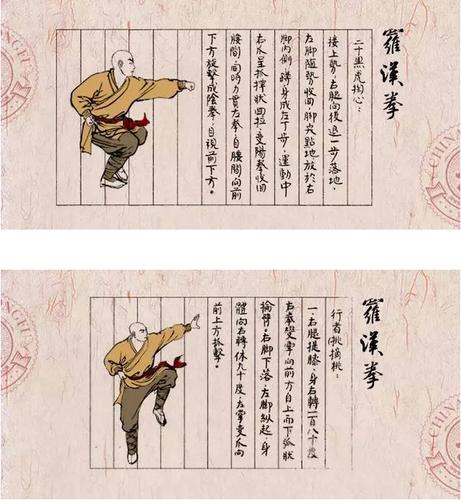 羅漢拳
二十黑虎掏心：
接上勢，右腿向後退一步落地，
左脚隨勢收回，脚尖點地放於右
脚内側，蹲身成左丁步，運動中
右爪呈抓撑狀回拉，變陽拳收回
腰間，同時力貫右拳，自腰間向前
下方旋擊成陰拳，目視前下方。
羅漢拳
行者偷摘桃：
一、右腿提膝，身右轉一百八十度
右拳變掌向前方自上而下弧狀
掄臂。右脚下落，左脚縱起，身
體向右轉体九十度，左掌變爪向
前上方抓擊。